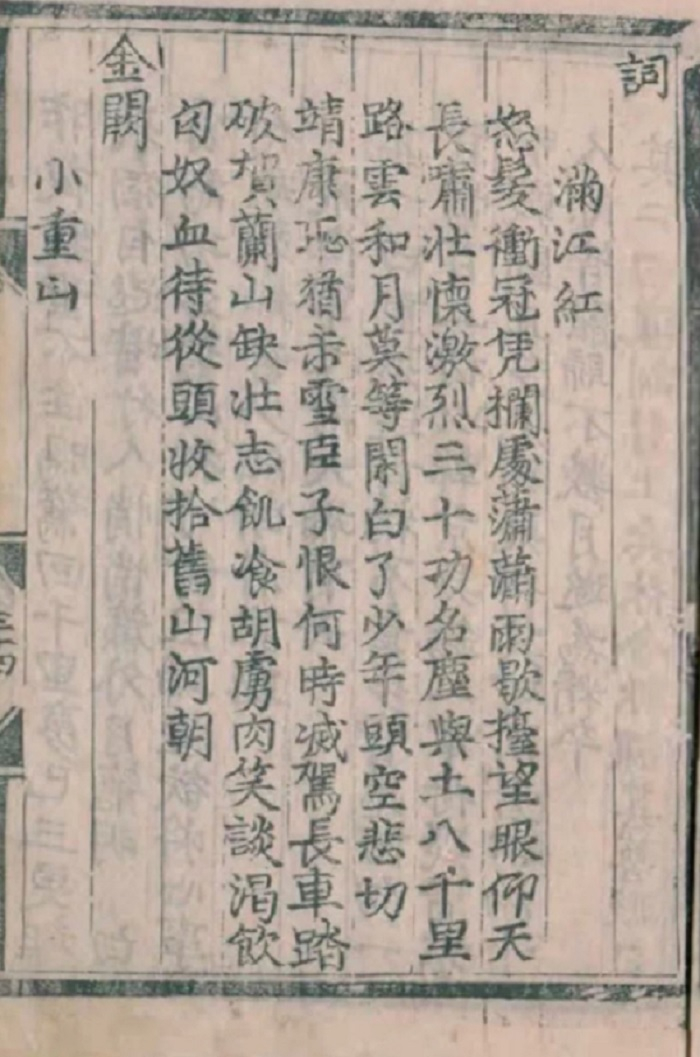 詞
滿江紅
怒髮衝冠凭攔處瀟瀟雨歇擡望眼仰天
長嘯壯懷激烈三十功名塵與土八千里
路雲和月莫等閑白了少年頭空悲切
靖康恥猶未雪臣子恨何時滅駕長車踏
破賀蘭山缺壯志飢飡胡虜肉笑談渴飲
匈奴血待從頭收拾舊山河朝
金闕
小重山
三四